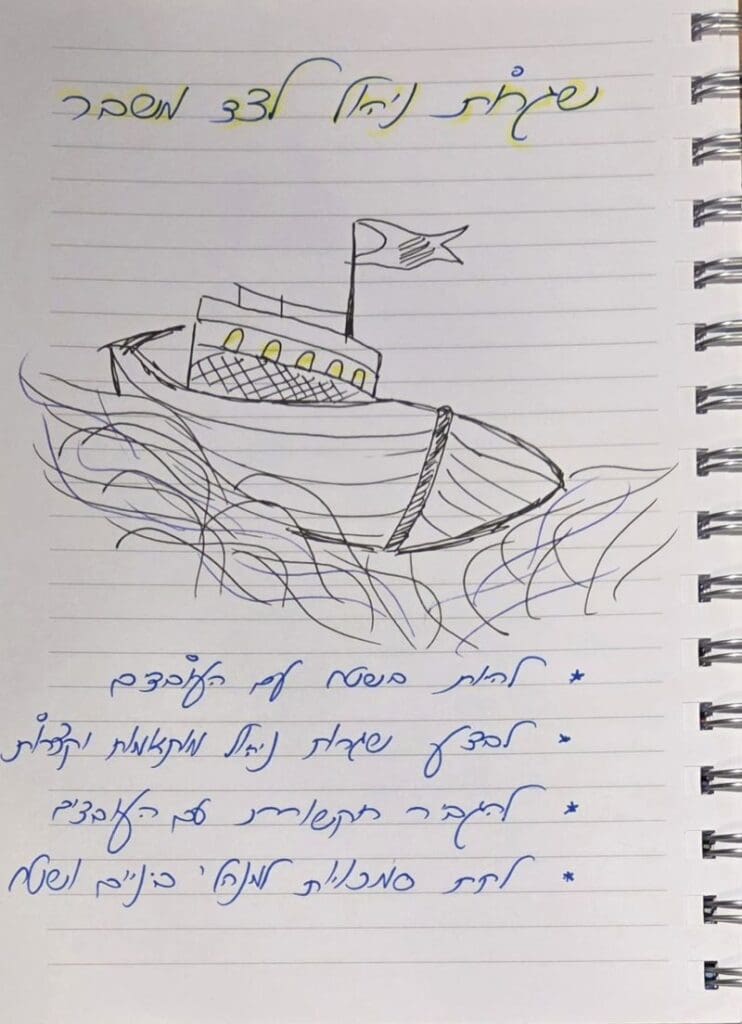 שגרות ניהול לצד משבר
* להיות בשטח עם העובדים
* לבצע שגרות ניהול מותאמות וקצרות
* להגביר תקשורת עם העובדים
* לתת סמכויות למנהלי ביניים ושטח